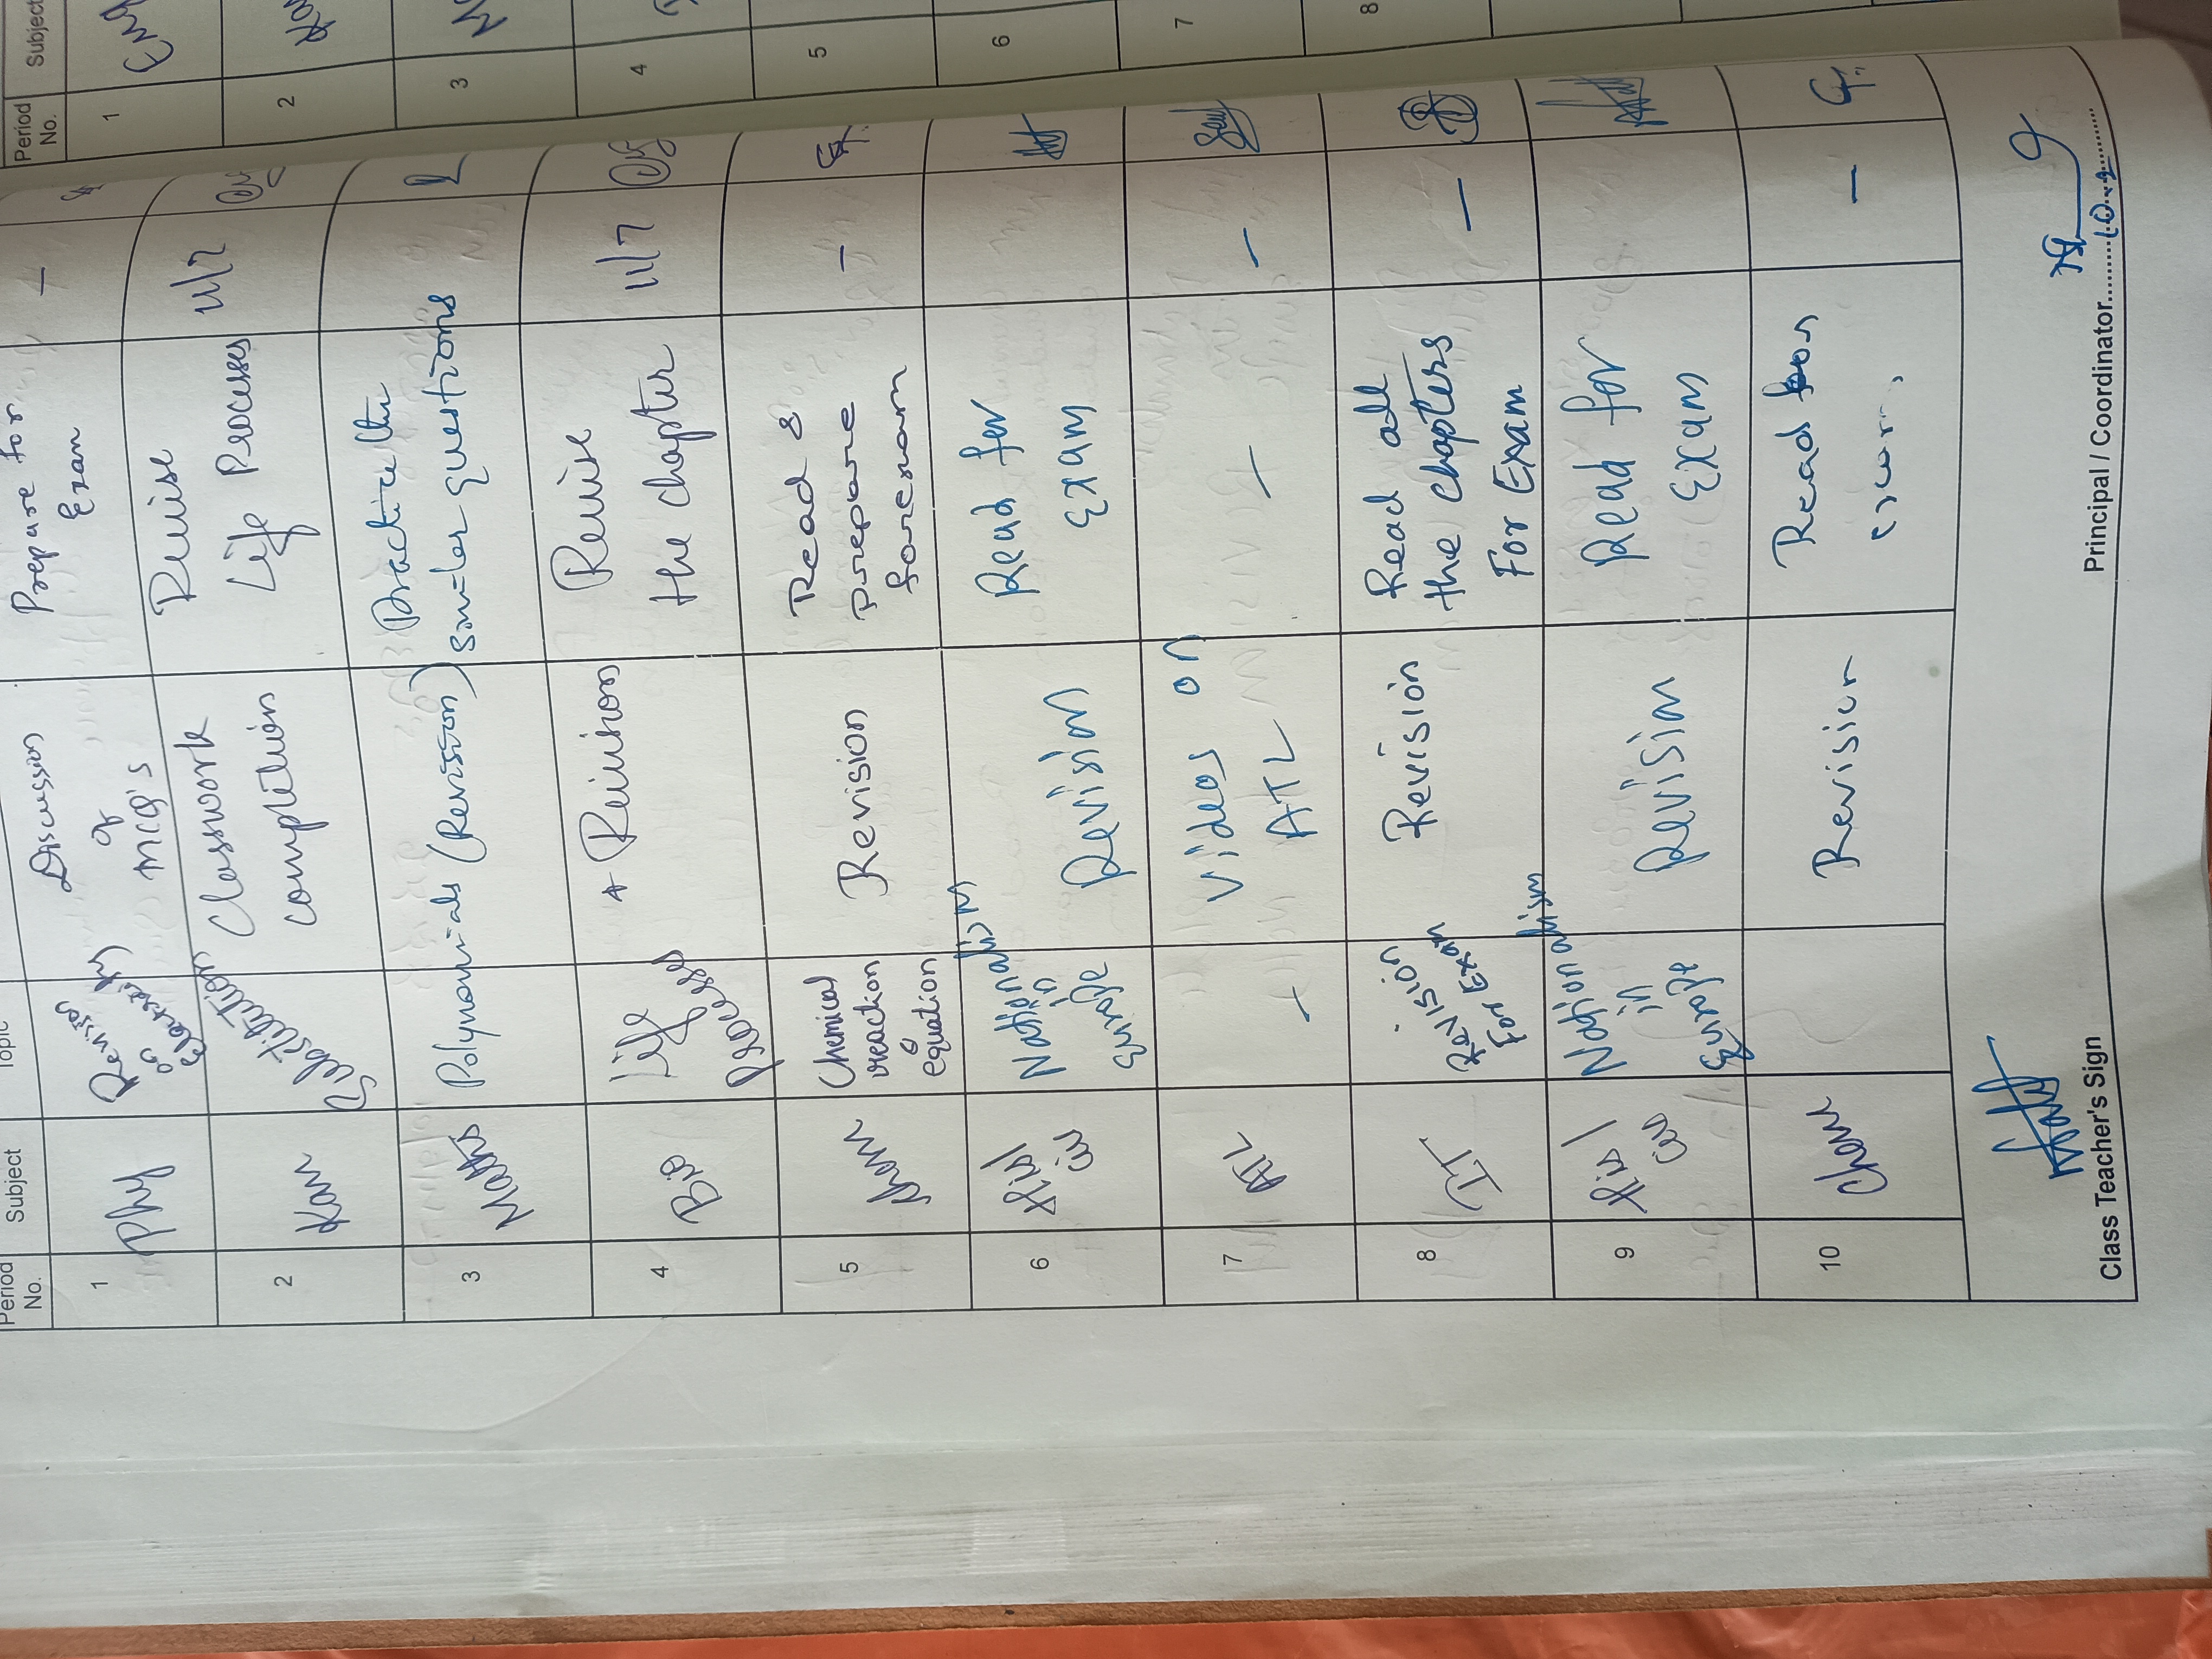 Period No. Subject
1 Eng
2 Kan
3
4
5
6
7
8
Period No. Subject Topic
1 Phy Revision on Discussion of MCQ's Prepare for Exam –
2 Kan Substitution Classwork completion Revise Life Processes 11/7
3 Maths Polynomials (Revision) Practice the similar questions
4 Bio Life Processes Revision Revise the chapter 11/7
5 Chemical reaction & equation Revision Read & prepare for exam –
6 His/Civ Nationalism in Europe Revision Read for Exam
7 ATL – Videos on ATL – –
8 IT Revision For Exam Revision Read all the chapters For Exam –
9 His/Civ Nationalism in Europe Revision Read for Exam
10 Chem Revision Read for exam. –
Class Teacher's Sign
Principal / Coordinator